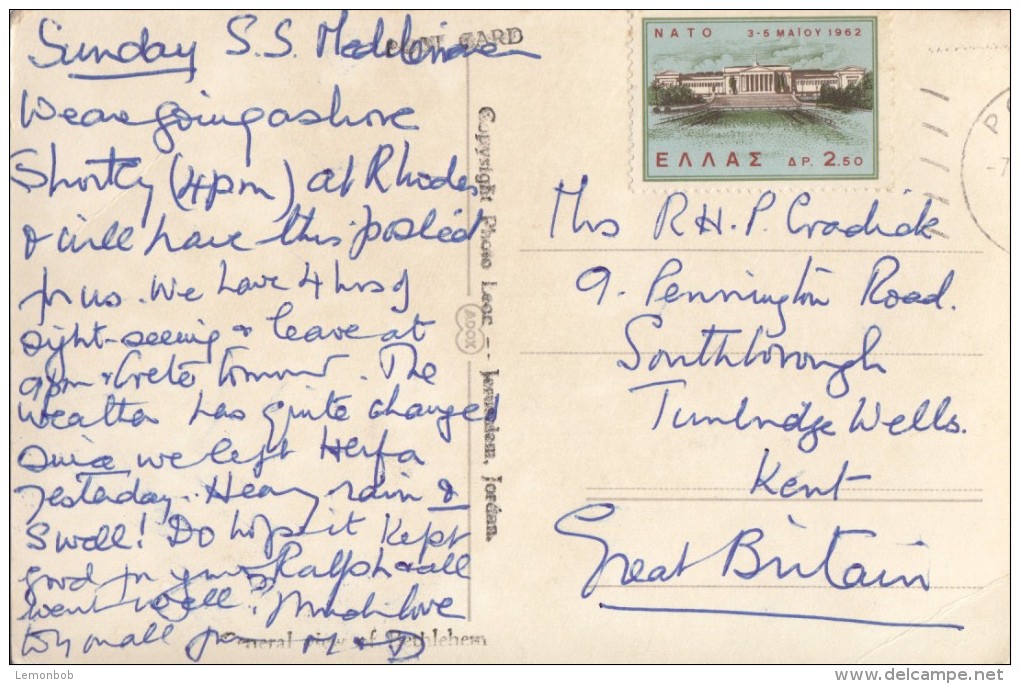 Sunday S.S.
POST CARD
We are going ashore
Shortly (4pm) at Rhodes
& will have this posted
for us. We have 4 hrs of
sight-seeing & leave at
9pm & Crete tomorrow. The
weather has quite changed
since we left Haifa
yesterday. Heavy rain &
Swell! Do hope it kept
good for you & Ralph & all
went well. Much love
to you all from
General view of Bethlehem
Copyright Photo Leon - Jerusalem, Jordan.
ADOX
ΝΑΤΟ 3-5 ΜΑΪΟΥ 1962
ΕΛΛΑΣ ΔΡ. 2.50
Mrs R.H.P. Cradick
9. Pennington Road.
Southborough
Tunbridge Wells.
Kent
Great Britain
Lemonbob
delcampe.net